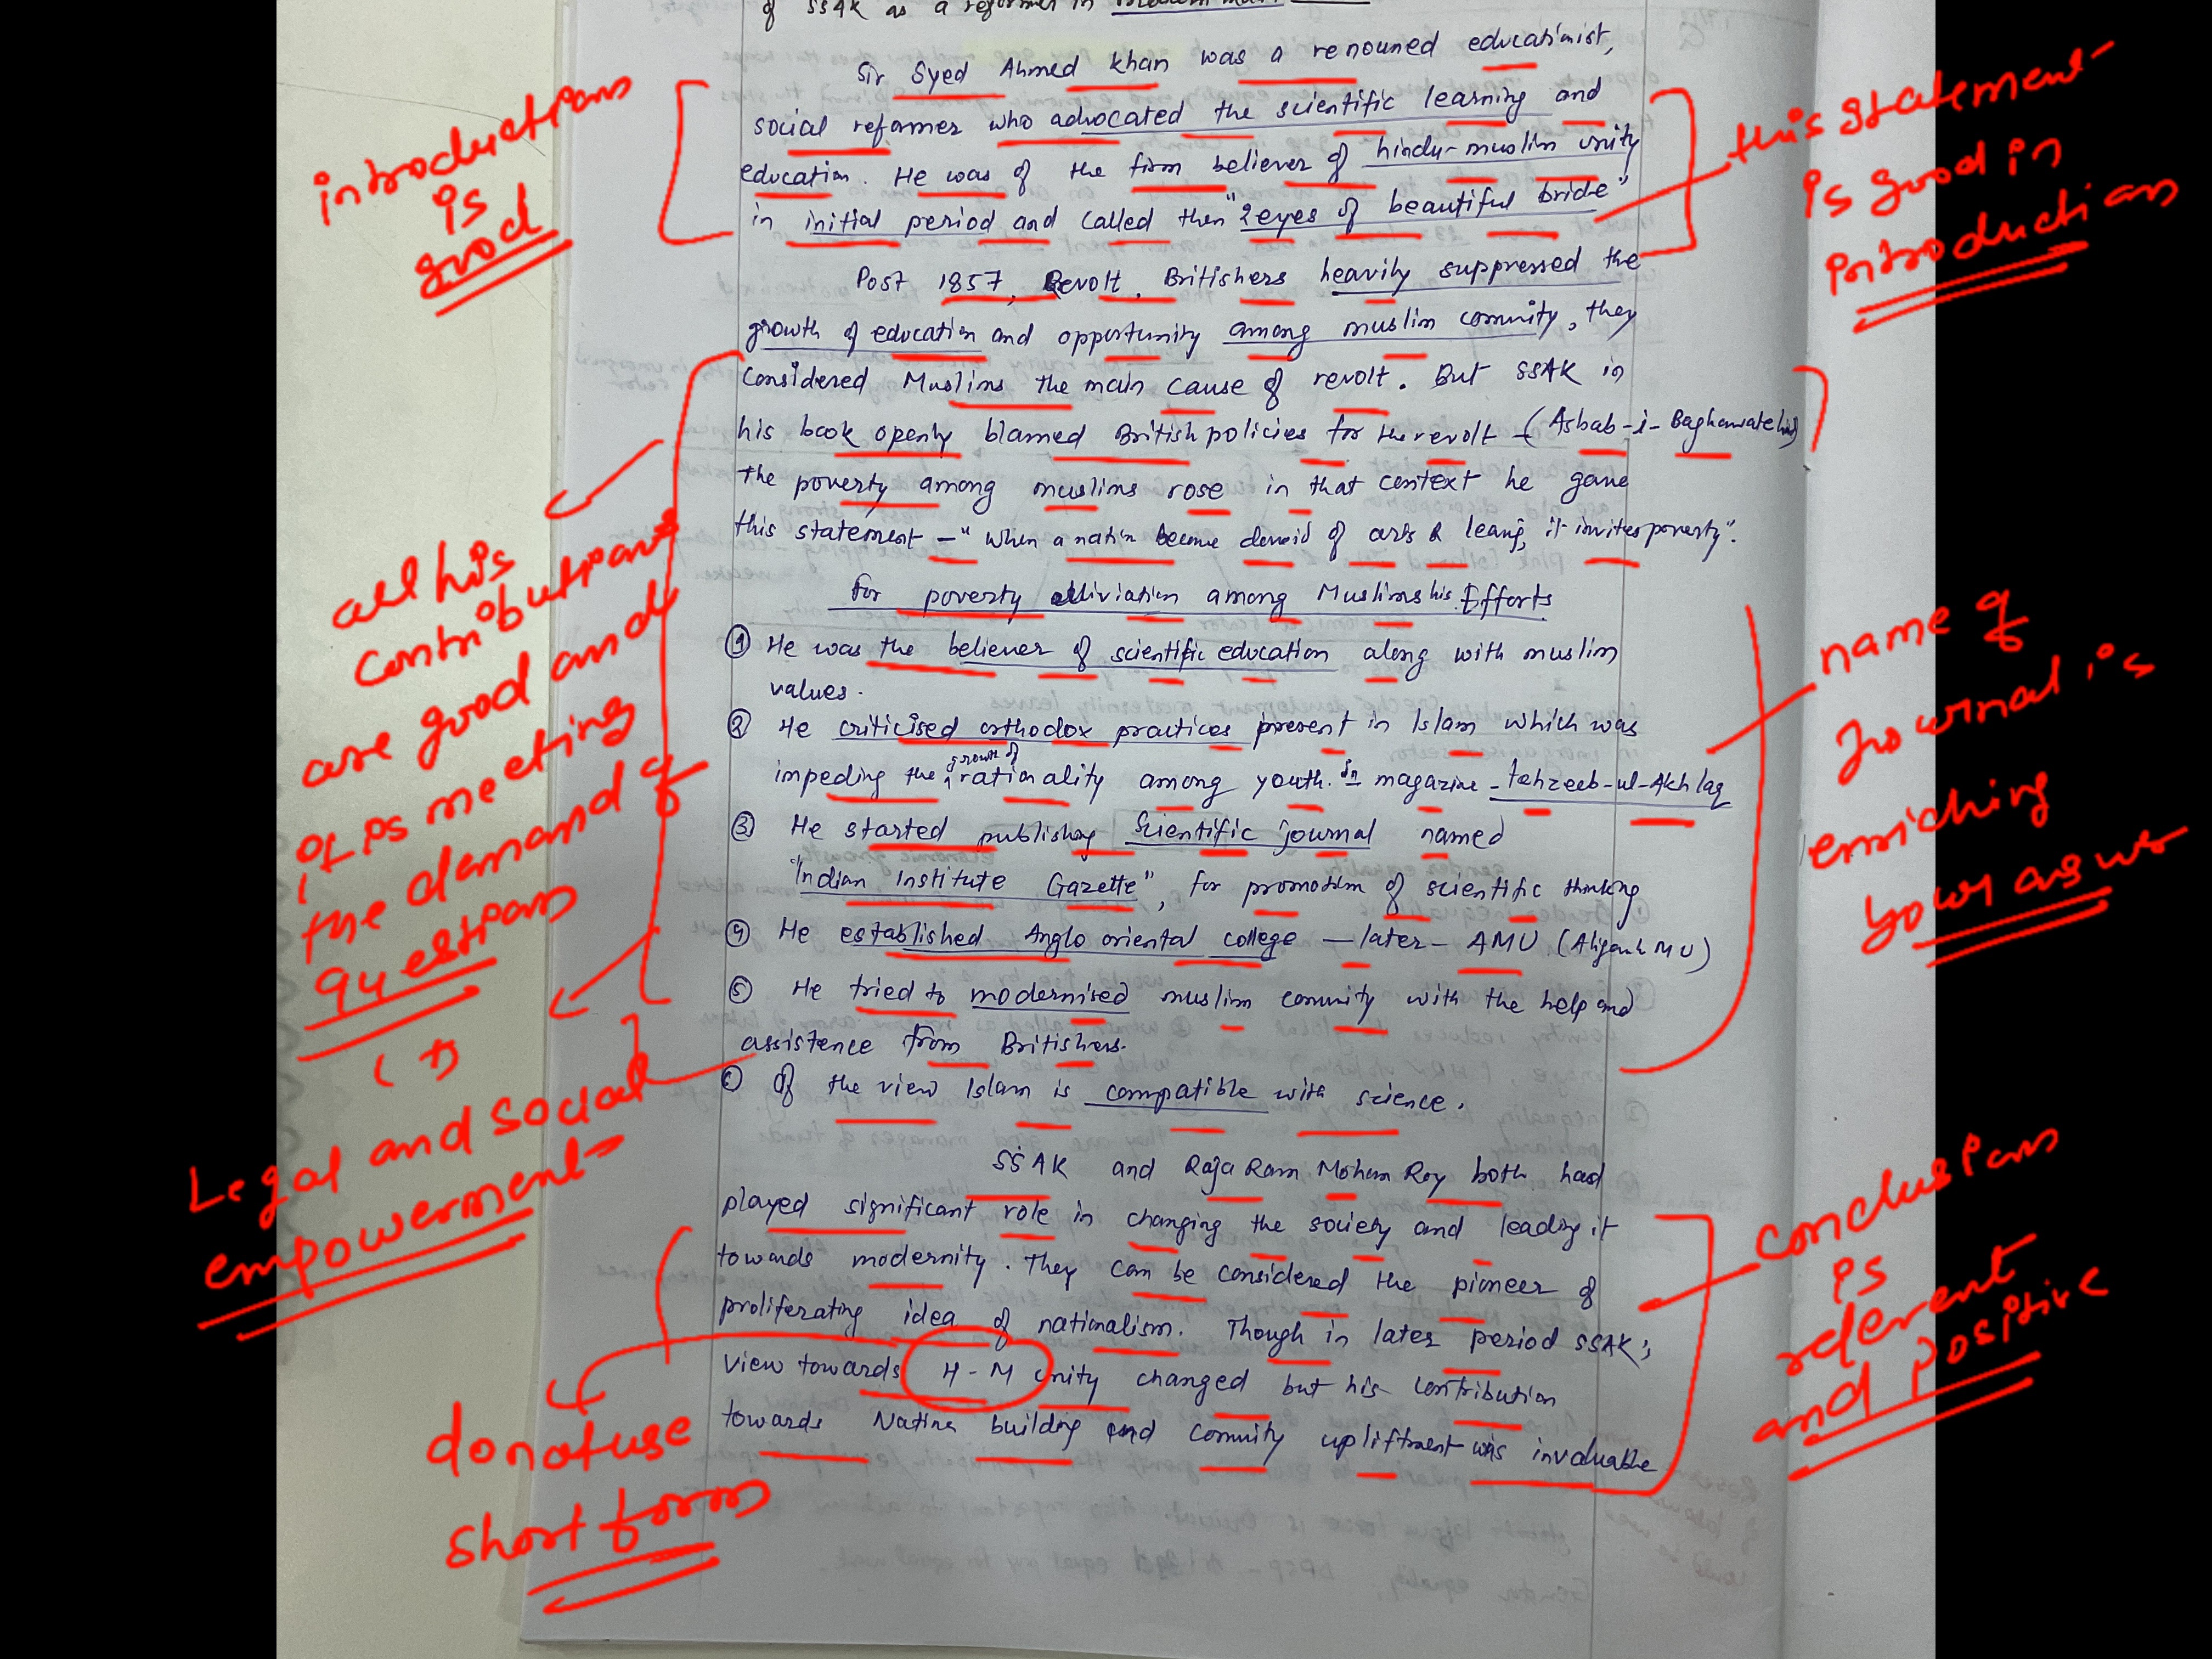 of SSAK as a reformer in
Sir Syed Ahmed khan was a renouned educationist,
social reformer who advocated the scientific learning and
education. He was of the firm believer of hindu-muslim unity
in initial period and called then "2 eyes of beautiful bride"
Post 1857, Revolt, Britishers heavily suppressed the
growth of education and opportunity among muslim comunity, they
Considered Muslims the main cause of revolt. But SSAK in
his book openly blamed British policies for the revolt - (Asbab-i-Baghawate hind)
the poverty among muslims rose in that context he gave
this statement - "when a nation become devoid of arts & learng, it invites poverty".
for poverty alliviation among Muslims his Efforts
① He was the believer of scientific education along with muslim
values.
② He criticised orthodox practices present in Islam which was
impeding the growth of rationality among youth. In magazine - tehzeeb-ul-Akhlaq
③ He started publishing Scientific journal named
"Indian Institute Gazette", for promotion of scientific thinking
④ He established Anglo oriental college - later - AMU (Aligarh MU)
⑤ He tried to modernised muslim comunity with the help and
assistence from Britishers.
⑥ Of the view Islam is compatible with science.
SSAK and Raja Ram Mohan Roy both had
played significant role in changing the society and leading it
towards modernity. They can be considered the pioneer of
proliferating idea of nationalism. Though in later period SSAK's
view towards H-M unity changed but his contribution
towards Nation building and comunity upliftment was invaluable
introduction
is
good
this statement
is good in
introduction
all his
contributions
are good and
it is meeting
the demand of
question
name of
Journal is
enriching
your answer
Legal and social
empowerment
conclusion
is
relevent
and positive
do not use
short form